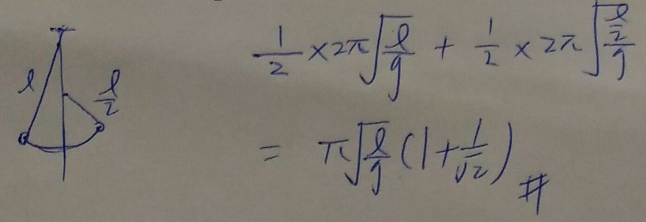 l
l/2
1/2 × 2π√(l/g) + 1/2 × 2π√((l/2)/g)
= π√(l/g) (1 + 1/√2) #